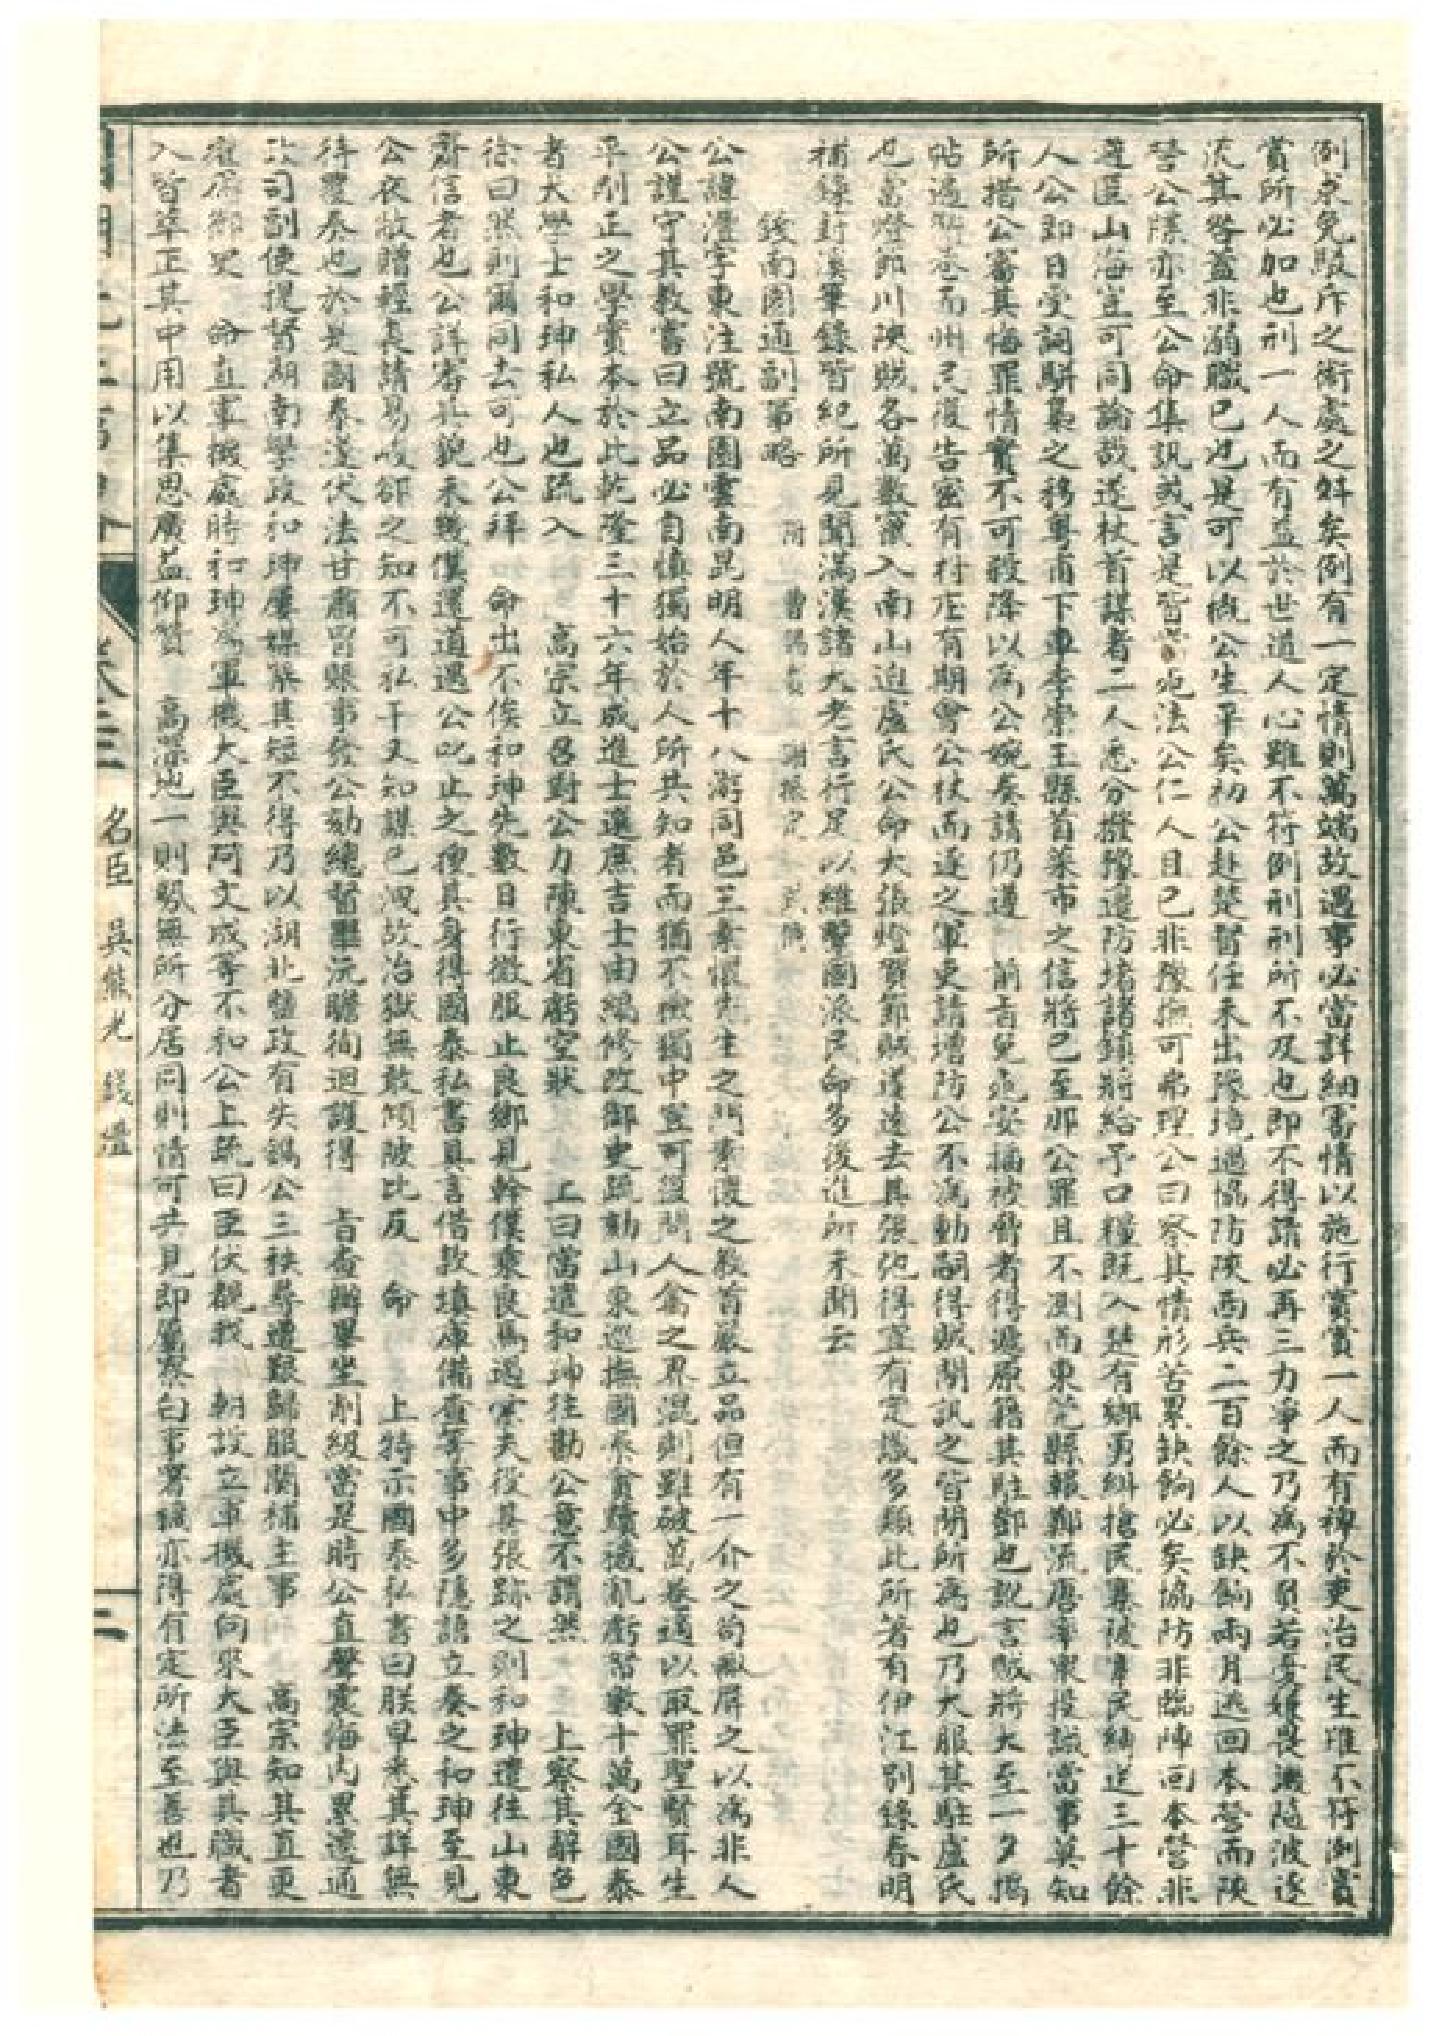 例求免駁斥之術處之斜矣例有一定情則萬端故遇事必當詳細審情以施行賞賞一人而有裨於吏治民生雖不符例賞
賞所必加也刑一人而有益於世道人心雖不符例刑刑所不及也即不得請必再三力爭之乃為不負若憂嫌畏譏隨波逐
流其咎蓋非溺職已也是可以概公生平矣初公赴楚督任未出豫境遇協防陝西兵二百餘人以缺餉兩月逃回本營而陝
督公牒亦至公命集訊或言是皆當死法公仁人且已非豫撫可弗理公曰察其情形苦累缺餉必矣協防非臨陣回本營非
逃匪山海豈可同論哉遂杖首謀者二人悉分撥豫邊防堵諸鎮將給予口糧既入楚有鄉勇糾搶民寨陂車民縛送三十餘
人公即日受詞駢梟之移粵甫下車李崇王縣首萊市之信將已至那公罪且不測而東莞縣報鄭流唐率眾投誠當事莫知
所措公審其悔罪情實不可殺降以為公婉奏請仍遵 前旨免死安插被脅者得遞原籍其駐鄧也訛言賊將大至一夕揭
帖遍街巷而州民復告密有村庄有期會公杖而逐之軍吏請增防公不為動嗣得賊間訊之皆間所為也乃大服其駐盧氏
也當燈節川陝賊各萬數竄入南山迫盧氏公命大張燈賀節賊遂遠去其張弛得宜有定識多類此所著有伊江別錄春明
補錄葑溪筆錄皆紀所見聞滿漢諸大老言行足以維繫國派民命多後進所未聞云
錢南園通副事略 附 曹錫寶 謝振定
公諱灃字東注號南園雲南昆明人年十八游同邑王素懷先生之門素履之教首嚴立品但有一介之苟輒屏之以為非人
公謹守其教嘗曰立品必自慎獨始於人所共知者而猶不檢獨中豈可復問人禽之界混則雖破萬卷適以取罪聖賢耳生
平剛正之學實本於此乾隆三十六年成進士選庶吉士由編修改御史疏劾山東巡撫國泰貪黷過亂虧帑數十萬金國泰
者大學士和珅私人也疏入 高宗立召對公力陳東省虧空狀 上曰當遣和珅往勘公意不謂然 上察其辭色
徐曰然則爾同去可也公拜 命出不俟和珅先數日行微服止良鄉見幹僕乘良馬過索夫役甚張跡之則和珅遣往山東
齎信者也公詳審其貌未幾僕還道遇公叱止之搜其身得國泰私書具言借款填庫備查等事中多隱語立奏之和珅至見
公衣敝贈輕裘請易峻卻之知不可私干又知謀已洩故治獄無敢傾陂比反 命 上特示國泰私書曰朕早悉其詳無
待覆奏也於是副泰遂伏法甘肅冒賑事發公劾總督畢沅瞻徇迴護得 旨查辦畢坐削級當是時公直聲震海內累遷通
政司副使提督湖南學政和珅屢媒孽其短不得乃以湖北鹽政有失鐫公三秩尋遭艱歸服闋補主事 高宗知其直更
擢爲御史 命直軍機處時和珅為軍機大臣與阿文成等不和公上疏曰臣伏覩我 朝設立軍機處向眾大臣與其職者
入皆萃正其中用以集思廣益仰贊 高深地一則勢無所分居同則情可共見即屬察白事署牘亦得有定所法至善也乃
卷三 名臣 吳熊光 錢灃